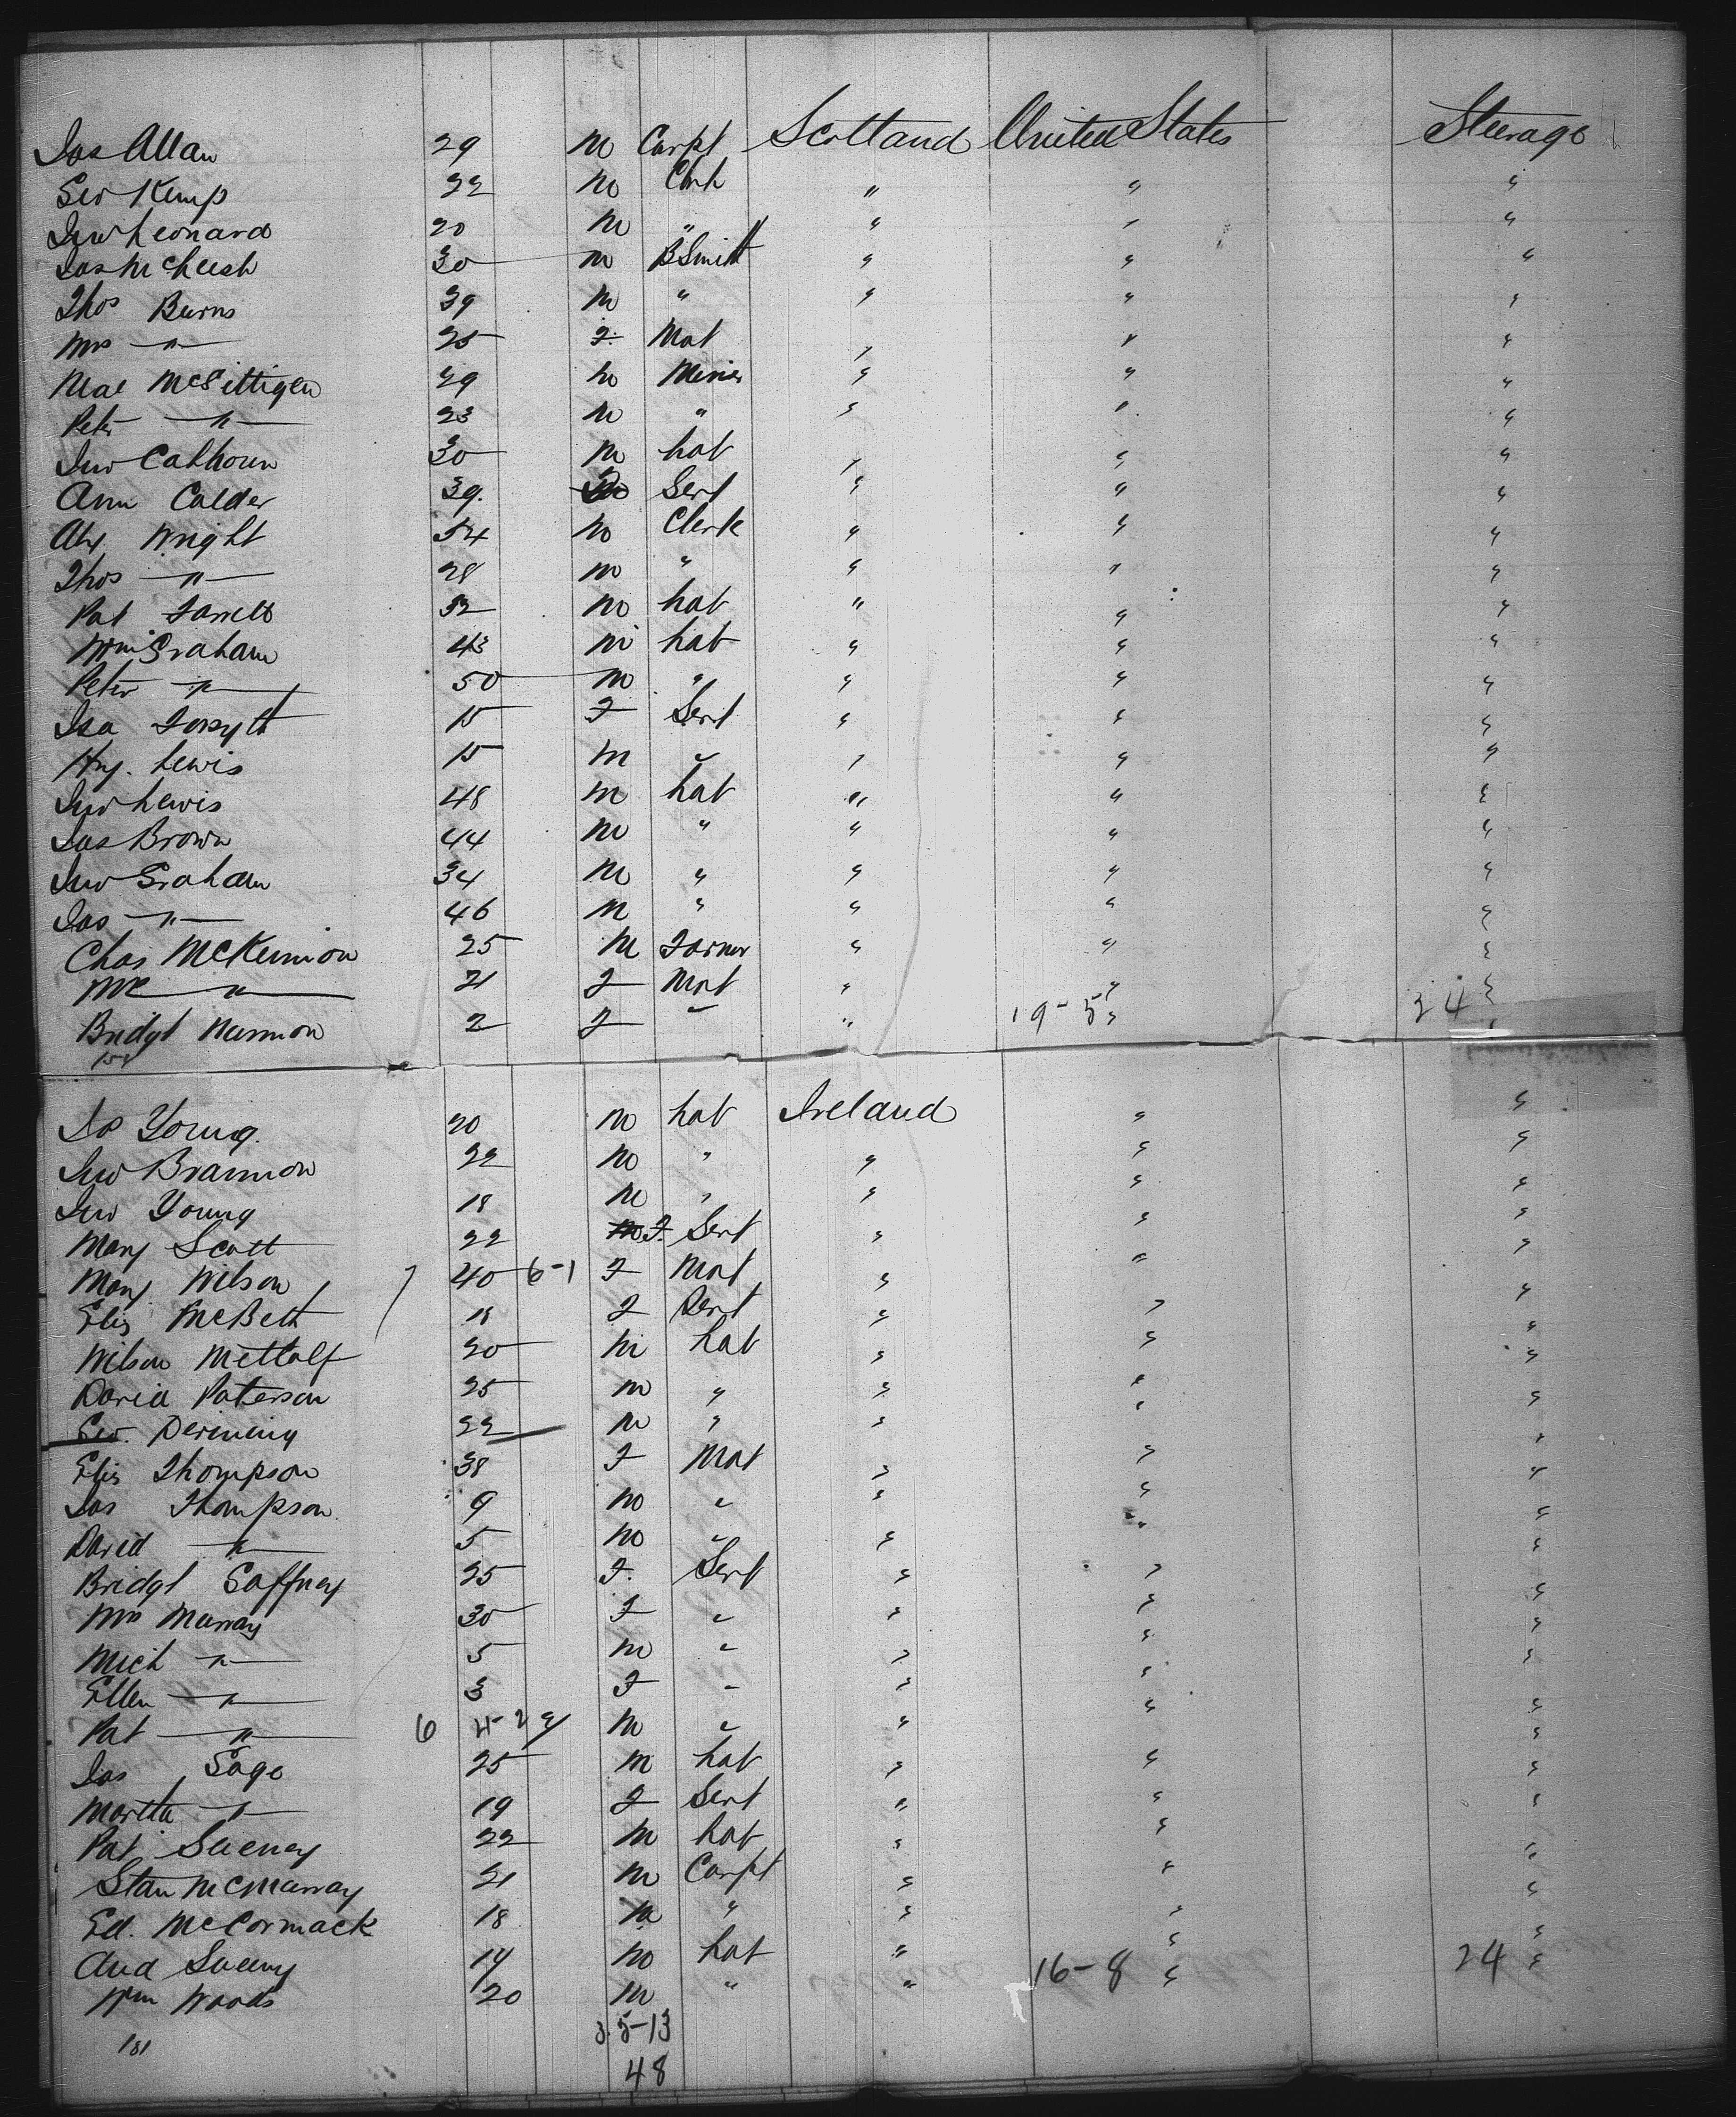 Jas Allan 29 M Carpt Scotland United States Steerage
Geo Kemp 22 M Clrk " " "
Jno Leonard 20 M " " " "
Jas McLeish 30 M BSmith " " "
Thos Burns 39 M " " " "
Mrs —"— 25 F. Mat " " "
Neal McGettigen 29 M Miner " " "
Peter —"— 23 M " " " "
Jno Calhoun 30 M Lab " " "
Ann Calder 39. Sert " " "
Alex Wright 54 M Clerk " " "
Thos —"— 28 M " " " "
Pat Farrell 32 M Lab " " "
Wm Graham 43 M Lab " " "
Peter —"— 50 M " " " "
Isa Forsyth 15 F Sert " " "
Hry. Lewis 15 M " " " "
Jno Lewis 48 M Lab " " "
Jas Brown 44 M " " " "
Jno Graham 34 M " " " "
Jas —"— 46 M " " " "
Chas McKennion 25 M Farmer " " "
—"— 21 F Mat " " "
Bridgt Nannon 2 F " " 19-5 " 24 "
Jas Young. 20 M Lab Ireland " "
Jno Brannon 22 M " " " "
Jno Young 18 M " " " "
Mary Scott 22 F. Sert " " "
Mary Wilson 40 6-1 F Mat " " "
Eliz McBeth 18 F Sert " " "
Wilson Mettalf 20 M Lab " " "
David Paterson 25 M " " " "
Geo. Derining 22 M " " " "
Eliz Thompson 38 F Mat " " "
Jas Thompson 9 M " " " "
David —"— 5 M " " " "
Bridgt Gaffney 25 F. Sert " " "
Mrs Murray 30 F " " " "
Mich —"— 5 M " " " "
Ellen —"— 3 F " " " "
Pat —"— 6 M " " " "
Jas Gage 25 M Lab " " "
Martha —"— 19 F Sert " " "
Pat Sweeney 22 M Lab " " "
Stan McMurray 21 M Carpt " " "
Ed. McCormack 18 M " " " "
And Sweeny 19 M Lab " " "
Wm Woods 20 M " " 16-8 " 24 "
181 3. 5-13
48